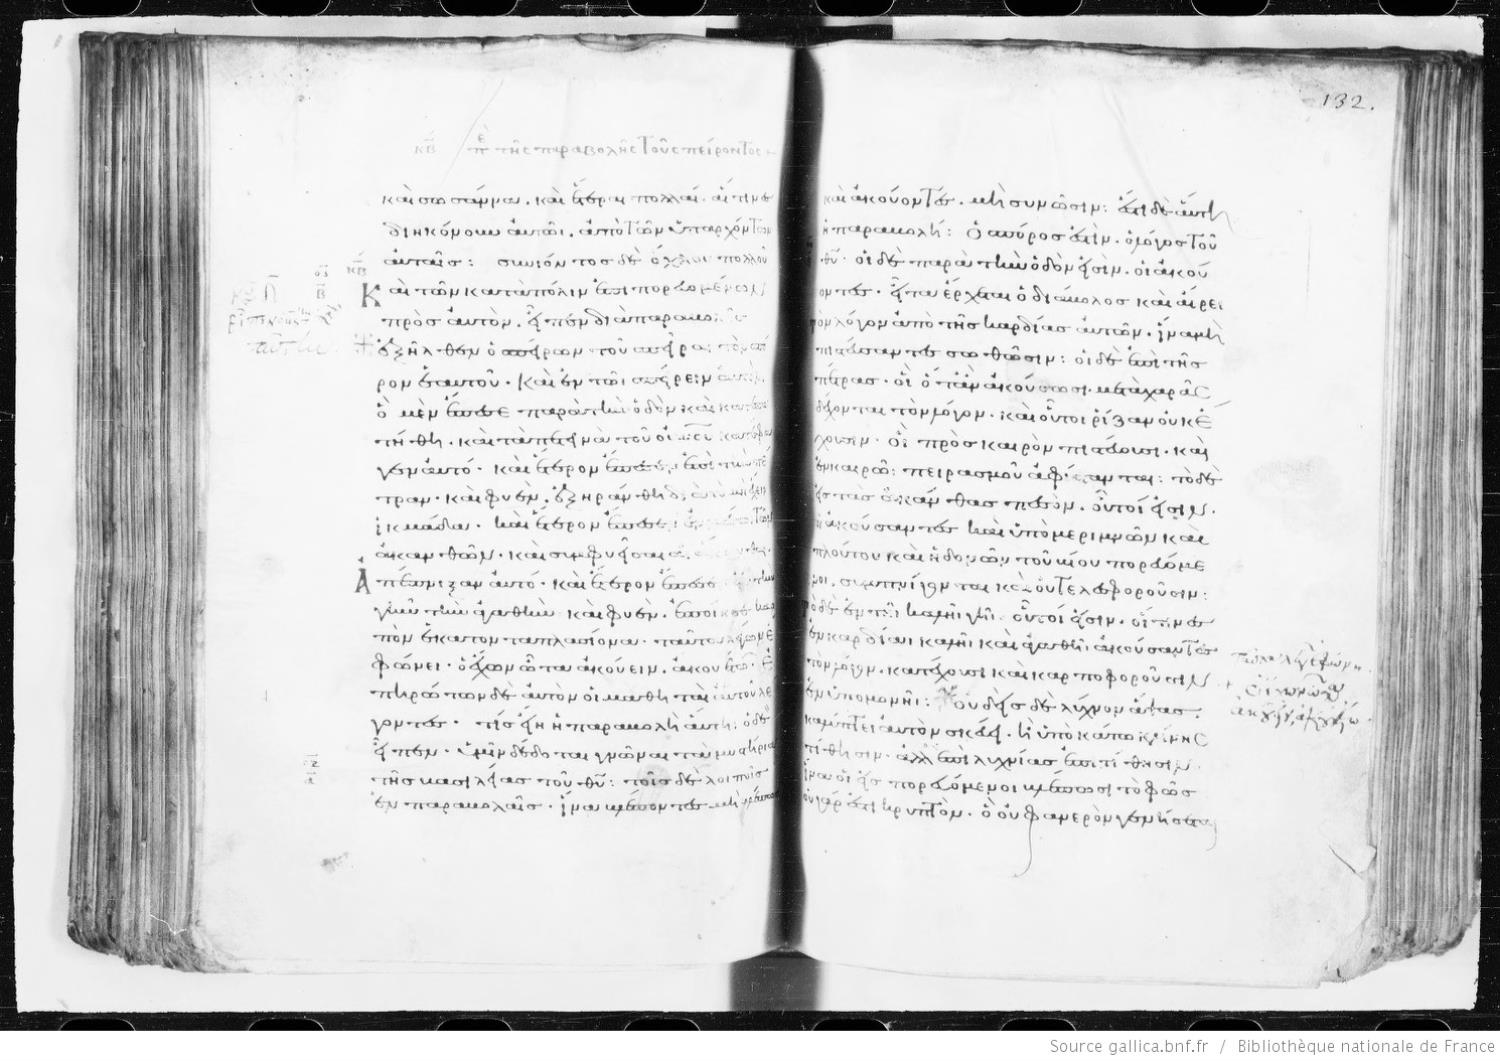 κβ π τῆς παραβολῆς τοῦ σπείροντος
καὶ σωσάννα. καὶ ἕτεραι πολλαί. αἵτινες
διηκόνουν αὐτῶι. ἀπὸ τῶν ὑπαρχόντων
αὐταῖς: συνιόντος δὲ ὄχλου πολλοῦ
Καὶ τῶν κατὰ πόλιν ἐπιπορευομένων
πρὸς αὐτὸν. εἶπεν διὰ παραβολῆς
ἐξῆλθεν ὁ σπείρων τοῦ σπεῖραι τὸν σπό
ρον ἑαυτοῦ. καὶ ἐν τῶι σπείρειν αὐτὸν.
ὃ μὲν ἔπεσε παρὰ τὴν ὁδὸν καὶ κατεπα
τήθη. καὶ τὰ πετεινὰ τοῦ οὐνοῦ κατέφα
γεν αὐτό. καὶ ἕτερον ἔπεσεν ἐπὶ τὴν πέ
τραν. καὶ φυὲν. ἐξηράνθη διὰ τὸ μὴ ἔχειν
ἰκμάδα. καὶ ἕτερον ἔπεσεν τῶν
ἀκανθῶν. καὶ συμφυεῖσαι αἱ ἄκανθαι.
Ἀπέπνιξαν αὐτό. καὶ ἕτερον ἔπεσεν τὴν
γῆν τὴν ἀγαθὴν καὶ φυὲν. ἐποίησε καρ
πὸν ἑκατονταπλασίονα. ταῦτα λέγων ἐ
φώνει. ὁ ἔχων ὦτα ἀκούειν. ἀκουέτω. Ἐ
πηρώτων δὲ αὐτὸν οἱ μαθηταὶ αὐτοῦ λέ
γοντες. τίς εἴη ἡ παραβολὴ αὕτη: ὁ δὲ
εἶπεν. ὑμῖν δέδοται γνῶναι τὰ μυστήρια
τῆς βασιλείας τοῦ θυ: τοῖς δὲ λοιποῖς
ἐν παραβολαῖς. ἵνα βλέποντες μὴ βλέπωσι
132.
καὶ ἀκούοντες. μὴ συνῶσιν: ἔστι δὲ αὕτη
ἡ παραβολή: ὁ σπόρος ἐστὶν. ὁ λόγος τοῦ
θυ. οἱ δὲ παρὰ τὴν ὁδὸν εἰσὶν. οἱ ἀκού
οντες. εἶτα ἔρχεται ὁ διάβολος καὶ αἴρει
τὸν λόγον ἀπὸ τῆς καρδίας αὐτῶν. ἵνα μὴ
πιστεύσαντες σωθῶσιν: οἱ δὲ ἐπὶ τῆς
πέτρας. οἳ ὅταν ἀκούσωσι μετὰ χαρᾶς
δέχονται τὸν λόγον. καὶ οὗτοι ῥίζαν οὐκ ἔ
χουσιν. οἳ πρὸς καιρὸν πιστεύουσι. καὶ
ἐν καιρῶ πειρασμοῦ ἀφίστανται: τὸ δὲ
εἰς τὰς ἀκάνθας πεσὸν. οὗτοί εἰσιν.
οἱ ἀκούσαντες καὶ ὑπὸ μεριμνῶν καὶ
πλούτου καὶ ἡδονῶν τοῦ βίου πορευόμε
νοι. συμπνίγονται καὶ οὐ τελεσφοροῦσιν:
τὸ δὲ ἐν τῆι καλῆι γῆι. οὗτοί εἰσιν. οἵτινες
ἐν καρδίαι καλῆι καὶ ἀγαθῆι ἀκούσαντες
τὸν λόγον. κατέχουσι καὶ καρποφοροῦσιν
ἐν ὑπομονῆι: οὐδεὶς δὲ λύχνον ἅψας.
καλύπτει αὐτὸν σκεύει. ἢ ὑποκάτω κλίνης
τίθησιν. ἀλλ' ἐπὶ λυχνίας ἐπιτίθησιν.
ἵνα οἱ εἰσπορευόμενοι βλέπωσι τὸ φῶς
οὐ γάρ ἐστι κρυπτὸν. ὃ οὐ φανερὸν γενήσεται
Source gallica.bnf.fr / Bibliothèque nationale de France